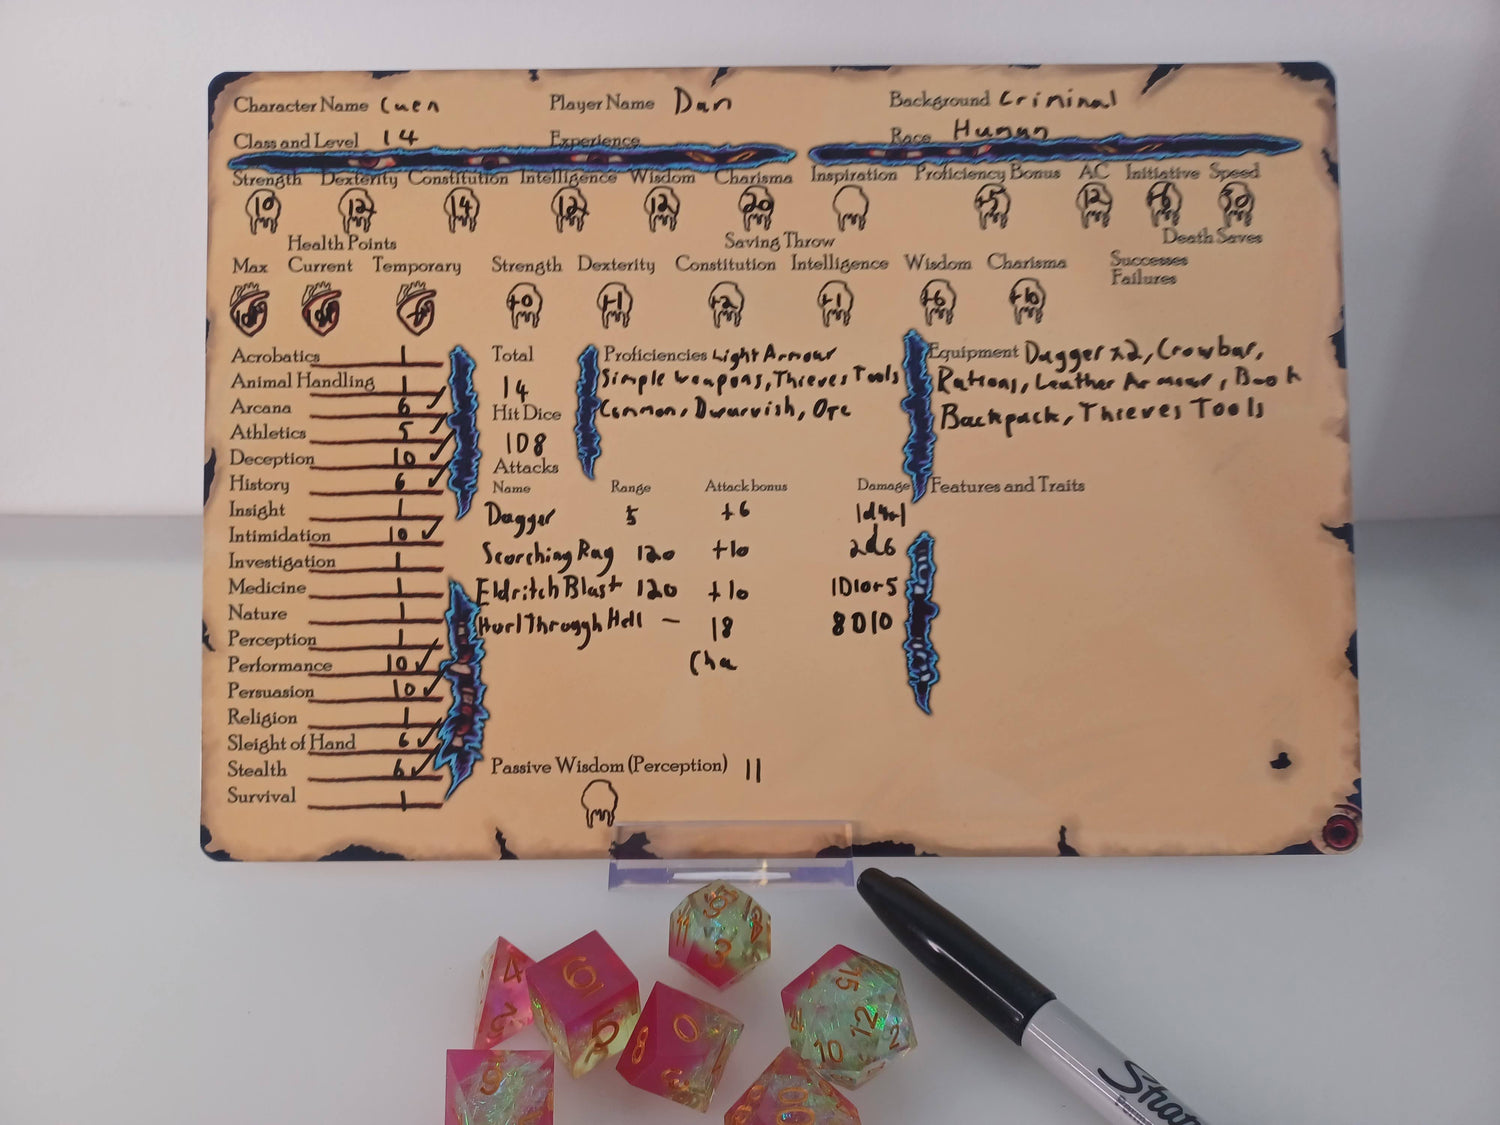 Character Name Cuen Player Name Dan Background Criminal
Class and Level 14 Experience Race Human
Strength Dexterity Constitution Intelligence Wisdom Charisma Inspiration Proficiency Bonus AC Initiative Speed
10 12 14 12 12 20 +5 12 +6 30
Health Points Saving Throw Death Saves
Max Current Temporary Strength Dexterity Constitution Intelligence Wisdom Charisma Successes
Failures
+0 +1 +2 +1 +6 +10
Acrobatics 1
Animal Handling 1
Arcana 6 ✓
Athletics 5 ✓
Deception 10 ✓
History 6 ✓
Insight 1
Intimidation 10 ✓
Investigation 1
Medicine 1
Nature 1
Perception 1
Performance 10 ✓
Persuasion 10 ✓
Religion 1
Sleight of Hand 6 ✓
Stealth 6 ✓
Survival 1
Total
14
Hit Dice
1D8
Proficiencies Light Armour
Simple weapons, Thieves Tools
Common, Dwarvish, Orc
Equipment Dagger x2, Crowbar,
Rations, Leather Armour, Book
Backpack, Thieves Tools
Attacks
Name Range Attack bonus Damage
Dagger 5 +6 1d4+1
Scorching Ray 120 +10 2d6
Eldritch Blast 120 +10 1D10+5
Hurl Through Hell - 18 8D10
Cha
Features and Traits
Passive Wisdom (Perception) 11
11 3
4 2
6 5
8 0
15 12 10 2
6
00
Shar